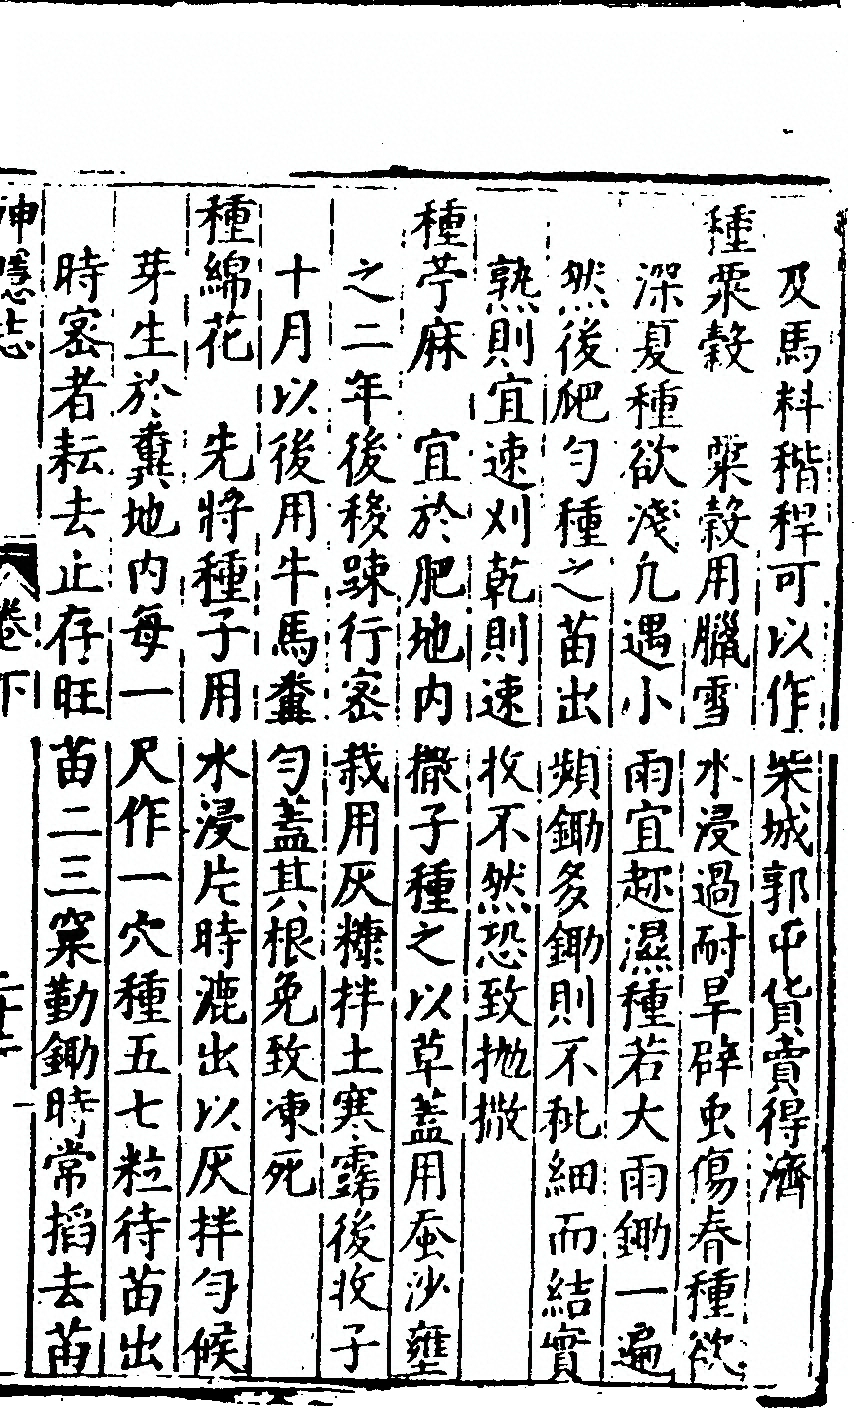 及馬料稭稈可以作柴城郭屯貨賣得濟
種粟穀　粟穀用臘雪水浸過耐旱辟虫傷春種欲
深夏種欲淺凢遇小雨宜趂濕種若大雨鋤一遍
然後爬勻種之苗出頻鋤多鋤則不秕細而結實
熟則宜速刈乾則速收不然恐致抛撒
種苧麻　宜於肥地内撒子種之以草蓋用蚕沙壅
之二年後稜踈行密栽用灰糠拌土寒露後收子
十月以後用牛馬糞勻蓋其根免致凍死
種綿花　先將種子用水浸片時漉出以灰拌勻候
芽生於糞地内每一尺作一穴種五七粒待苗出
時密者耘去止存旺苗二三窠勤鋤時常搯去苗
神隱志　卷下